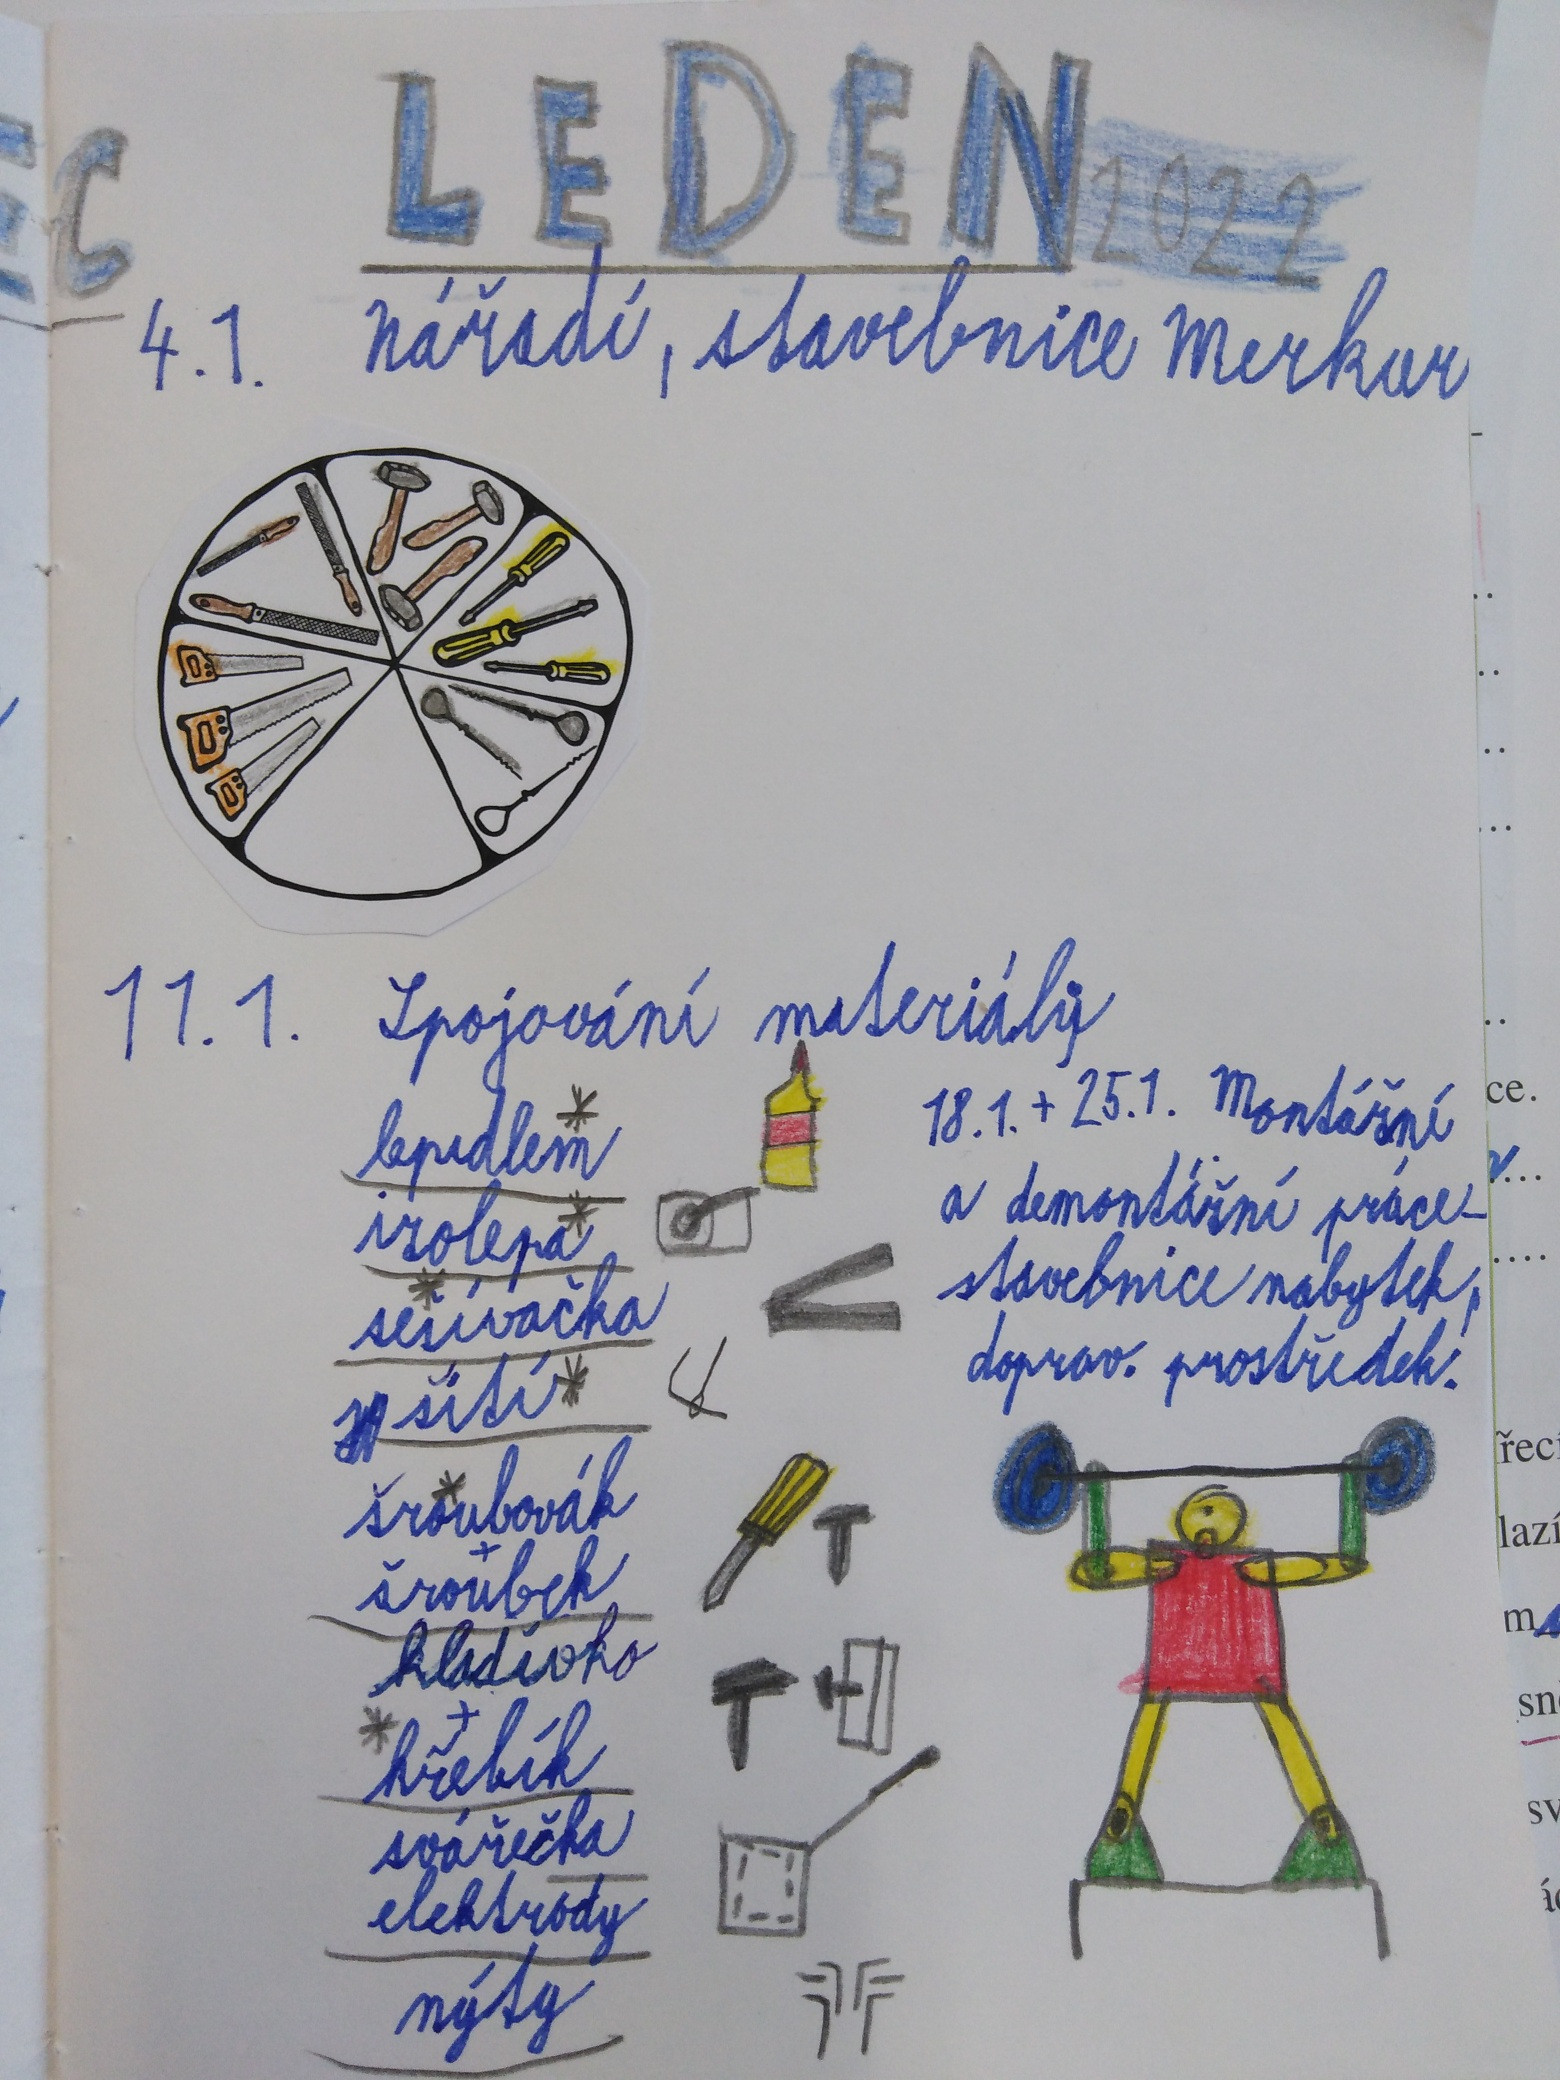 EC
LEDEN 2022
4.1. Nářadí, stavebnice Merkur
11.1. Spojování materiálů
lepidlem *
izolepa *
sešívačka *
šití *
šroubovák *
+
šroubek
kladívko
+
* hřebík
svářečka
elektrody
nýty
18.1. + 25.1. Montážní
a demontážní práce -
stavebnice nábytek,
doprav. prostředek.
ce.
řecí
lazí
m
sně
sv